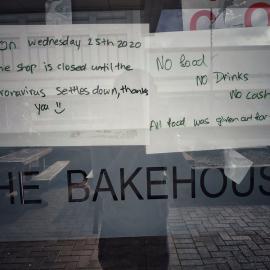 on wednesday 25th 2020
he shop is closed until the
oronavirus settles down, thanks
you
No food
No Drinks
No cash
All food was given out for
HE BAKEHOUS